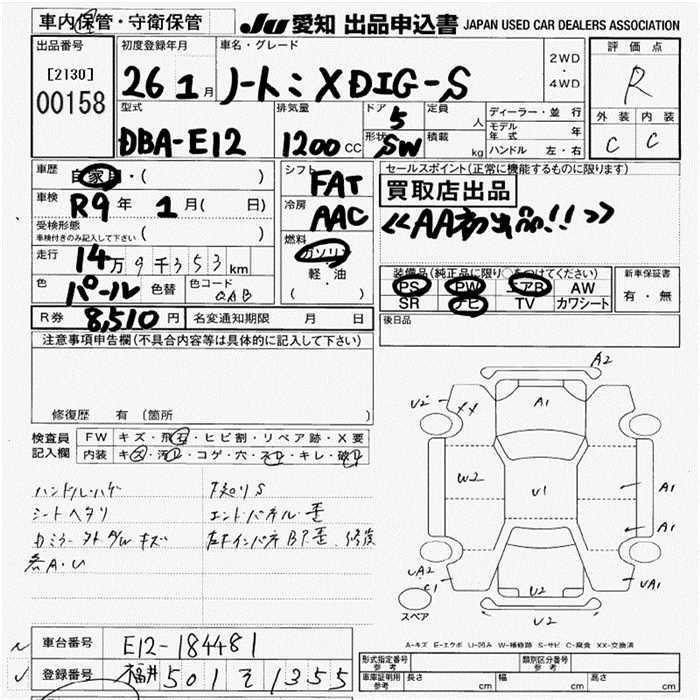 車内保管・守衛保管
JU 愛知 出品申込書 JAPAN USED CAR DEALERS ASSOCIATION
出品番号
[2130]
00158
初度登録年月
26 1月
車名・グレード
ノート ニ X DIG-S
2WD
・
4WD
評価点
R
外装 内装
C C
型式
DBA-E12
排気量
1200 CC
ドア
5
形状
SW
定員 人
積載 kg
ディーラー・並行
モデル年式 年
ハンドル 左・右
車歴
自家用・( )
車検
R9年 1月( 日)
受検形態
車検付きのみ記入して下さい ( )
走行
14万9千353km
色
パール
色替
色コード
QAB
R券 8,510円
名変通知期限 月 日
シフト
FAT
冷房
AAC
燃料
ガソリン
軽・油
( )
セールスポイント(正常に機能するものに限ります)
買取店出品
《AA初出品!!》
装備品(純正品に限り○をつけてください)
PS PW エアB AW
SR ナビ TV カワシート
新車保証書
有・無
後日品
注意事項申告欄(不具合内容等は具体的に記入して下さい)
修復歴 有 (箇所 )
検査員
記入欄
FW キズ・飛石・ヒビ割・リペア跡・X要
内装 キズ・汚れ・コゲ・穴・スレ・キレ・破れ
ハンドル・ハゲ
シートヘタリ
カミラー
キズ
各A・U
下廻りS
エンドパネル・歪
修復
A2
U2
XX
A1
W2
U1
A1
A1
UA2
C1
U2
UA1
U2
スペア
A-キズ E-エクボ U-凹み W-補修跡 S-サビ C-腐食 XX-交換済
車台番号
E12-184481
登録番号
福井501そ1355
形式指定番号
参考
類別区分番号
参考
車庫証明用
参考
長さ cm
幅 cm
高さ cm